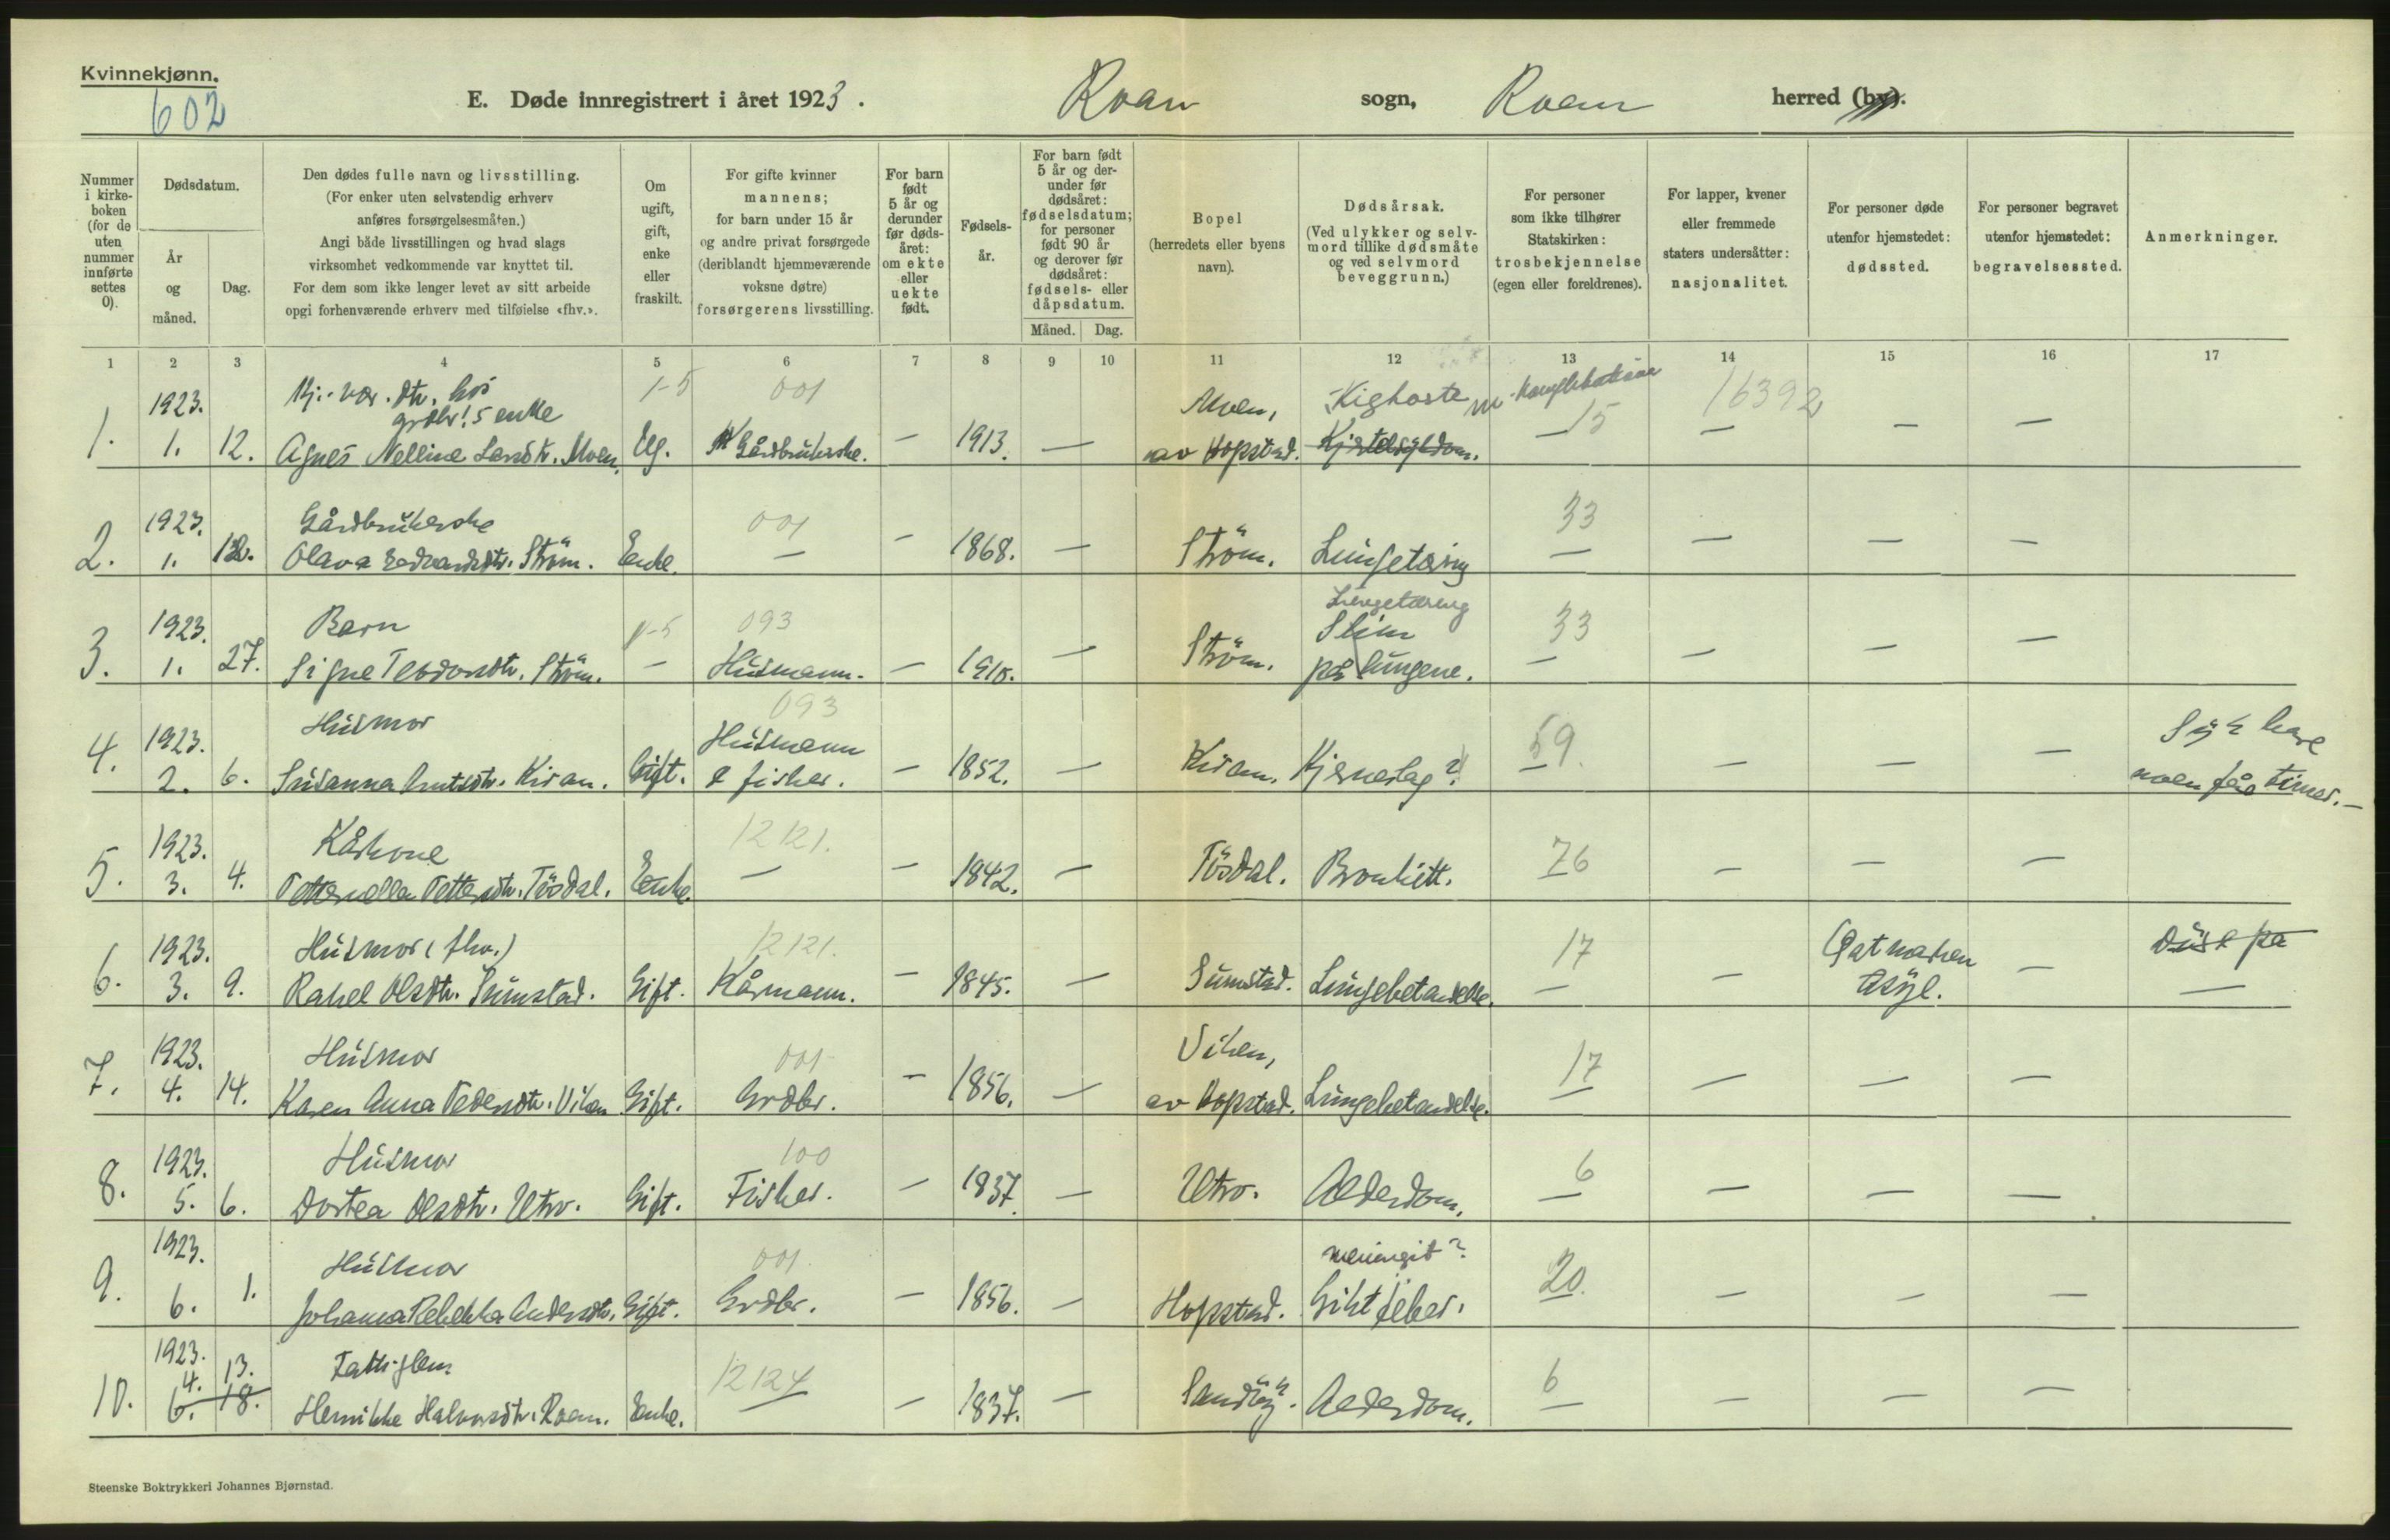 Kvinnekjønn.
602
E. Døde innregistrert i året 1923. Roan sogn, Roan herred (by).
Nummer i kirkeboken (for de uten nummer innførte settes 0).
Dødsdatum.
År og måned.
Dag.
Den dødes fulle navn og livsstilling.
(For enker uten selvstendig erhverv anføres forsørgelsesmåten.)
Angi både livsstillingen og hvad slags virksomhet vedkommende var knyttet til.
For dem som ikke lenger levet av sitt arbeide opgi forhenværende erhverv med tilføielse «fhv.».
Om ugift, gift, enke eller fraskilt.
For gifte kvinner mannens; for barn under 15 år og andre privat forsørgede (deriblandt hjemmeværende voksne døtre) forsørgerens livsstilling.
For barn født 5 år og derunder før dødsåret: om ekte eller uekte født.
Fødselsår.
For barn født 5 år og derunder før dødsåret: fødselsdatum; for personer født 90 år og derover før dødsåret: fødsels- eller dåpsdatum.
Måned. Dag.
Bopel (herredets eller byens navn).
Dødsårsak.
(Ved ulykker og selvmord tillike dødsmåte og ved selvmord beveggrunn.)
For personer som ikke tilhører Statskirken: trosbekjennelse (egen eller foreldrenes).
For lapper, kvener eller fremmede staters undersåtter: nasjonalitet.
For personer døde utenfor hjemstedet: dødssted.
For personer begravet utenfor hjemstedet: begravelsessted.
Anmerkninger.
1 2 3 4 5 6 7 8 9 10 11 12 13 14 15 16 17
1923. Hj.-vær. dtr. hos 1-5 001 Moen, Kighoste m. komplikationer 16392
grdbr's enke
1. 1. 12. Agnes Nelline Moen. Ug. Gårdbrukerske. — 1913. — av Hopstad. Kjertelsykdom. — 15 — — —
1923. Gårdbrukerske 001 33
2. 1. 12. Olava Edvardsdtr. Strøm. Enke. — — 1868. — Strøm. Lungetæring — — — —
Lungetæring
1923. Barn 1-5 093 Slim 33
3. 1. 27. Signe Teodorsdtr. Strøm. — Husmann. — 1910. — Strøm. på lungene. — — — —
093
1923. Husmor Husmann 59. Syk bare
4. 2. 6. Susanna Kiran. Gift. & fisker. — 1852. — Kiran. Hjerneslag? — — — — noen få timer. —
1923. Kårkone 12121. 76
5. 3. 4. Petternella Pettersdtr. Tøsdal. Enke. — — 1842. — Tøsdal. Bronkitt. — — — —
1923. Husmor (fhv.) 12121. 17 Døde på
6. 3. 9. Rakel Olsdtr. Sumstad. Gift. Kårmann. — 1845. — Sumstad. Lungebetendelse. — — Asyl. — —
1923. Husmor 001 Viken, 17
7. 4. 14. Karen Anna Pedersdtr. Viken Gift. Grdbr. — 1856. — av Hopstad. Lungebetendelse. — — — —
1923. Husmor 100 6
8. 5. 6. Dortea Olsdtr. Utro. Gift. Fisker. — 1837. — Utro. Alderdom. — — — —
1923. Husmor 001 meningit? 20.
9. 6. 1. Johanna Rebekka Andersdtr. Gift. Grdbr. — 1856. — Hopstad. Giktfeber. — — — —
1923. Fattiglem. 12124 6
4. 13.
10. 6. 18. Henrikke Halvorsdtr. Roan. Enke. — — 1837. — Sandøy. Alderdom. — — — —
Steenske Boktrykkeri Johannes Bjørnstad.